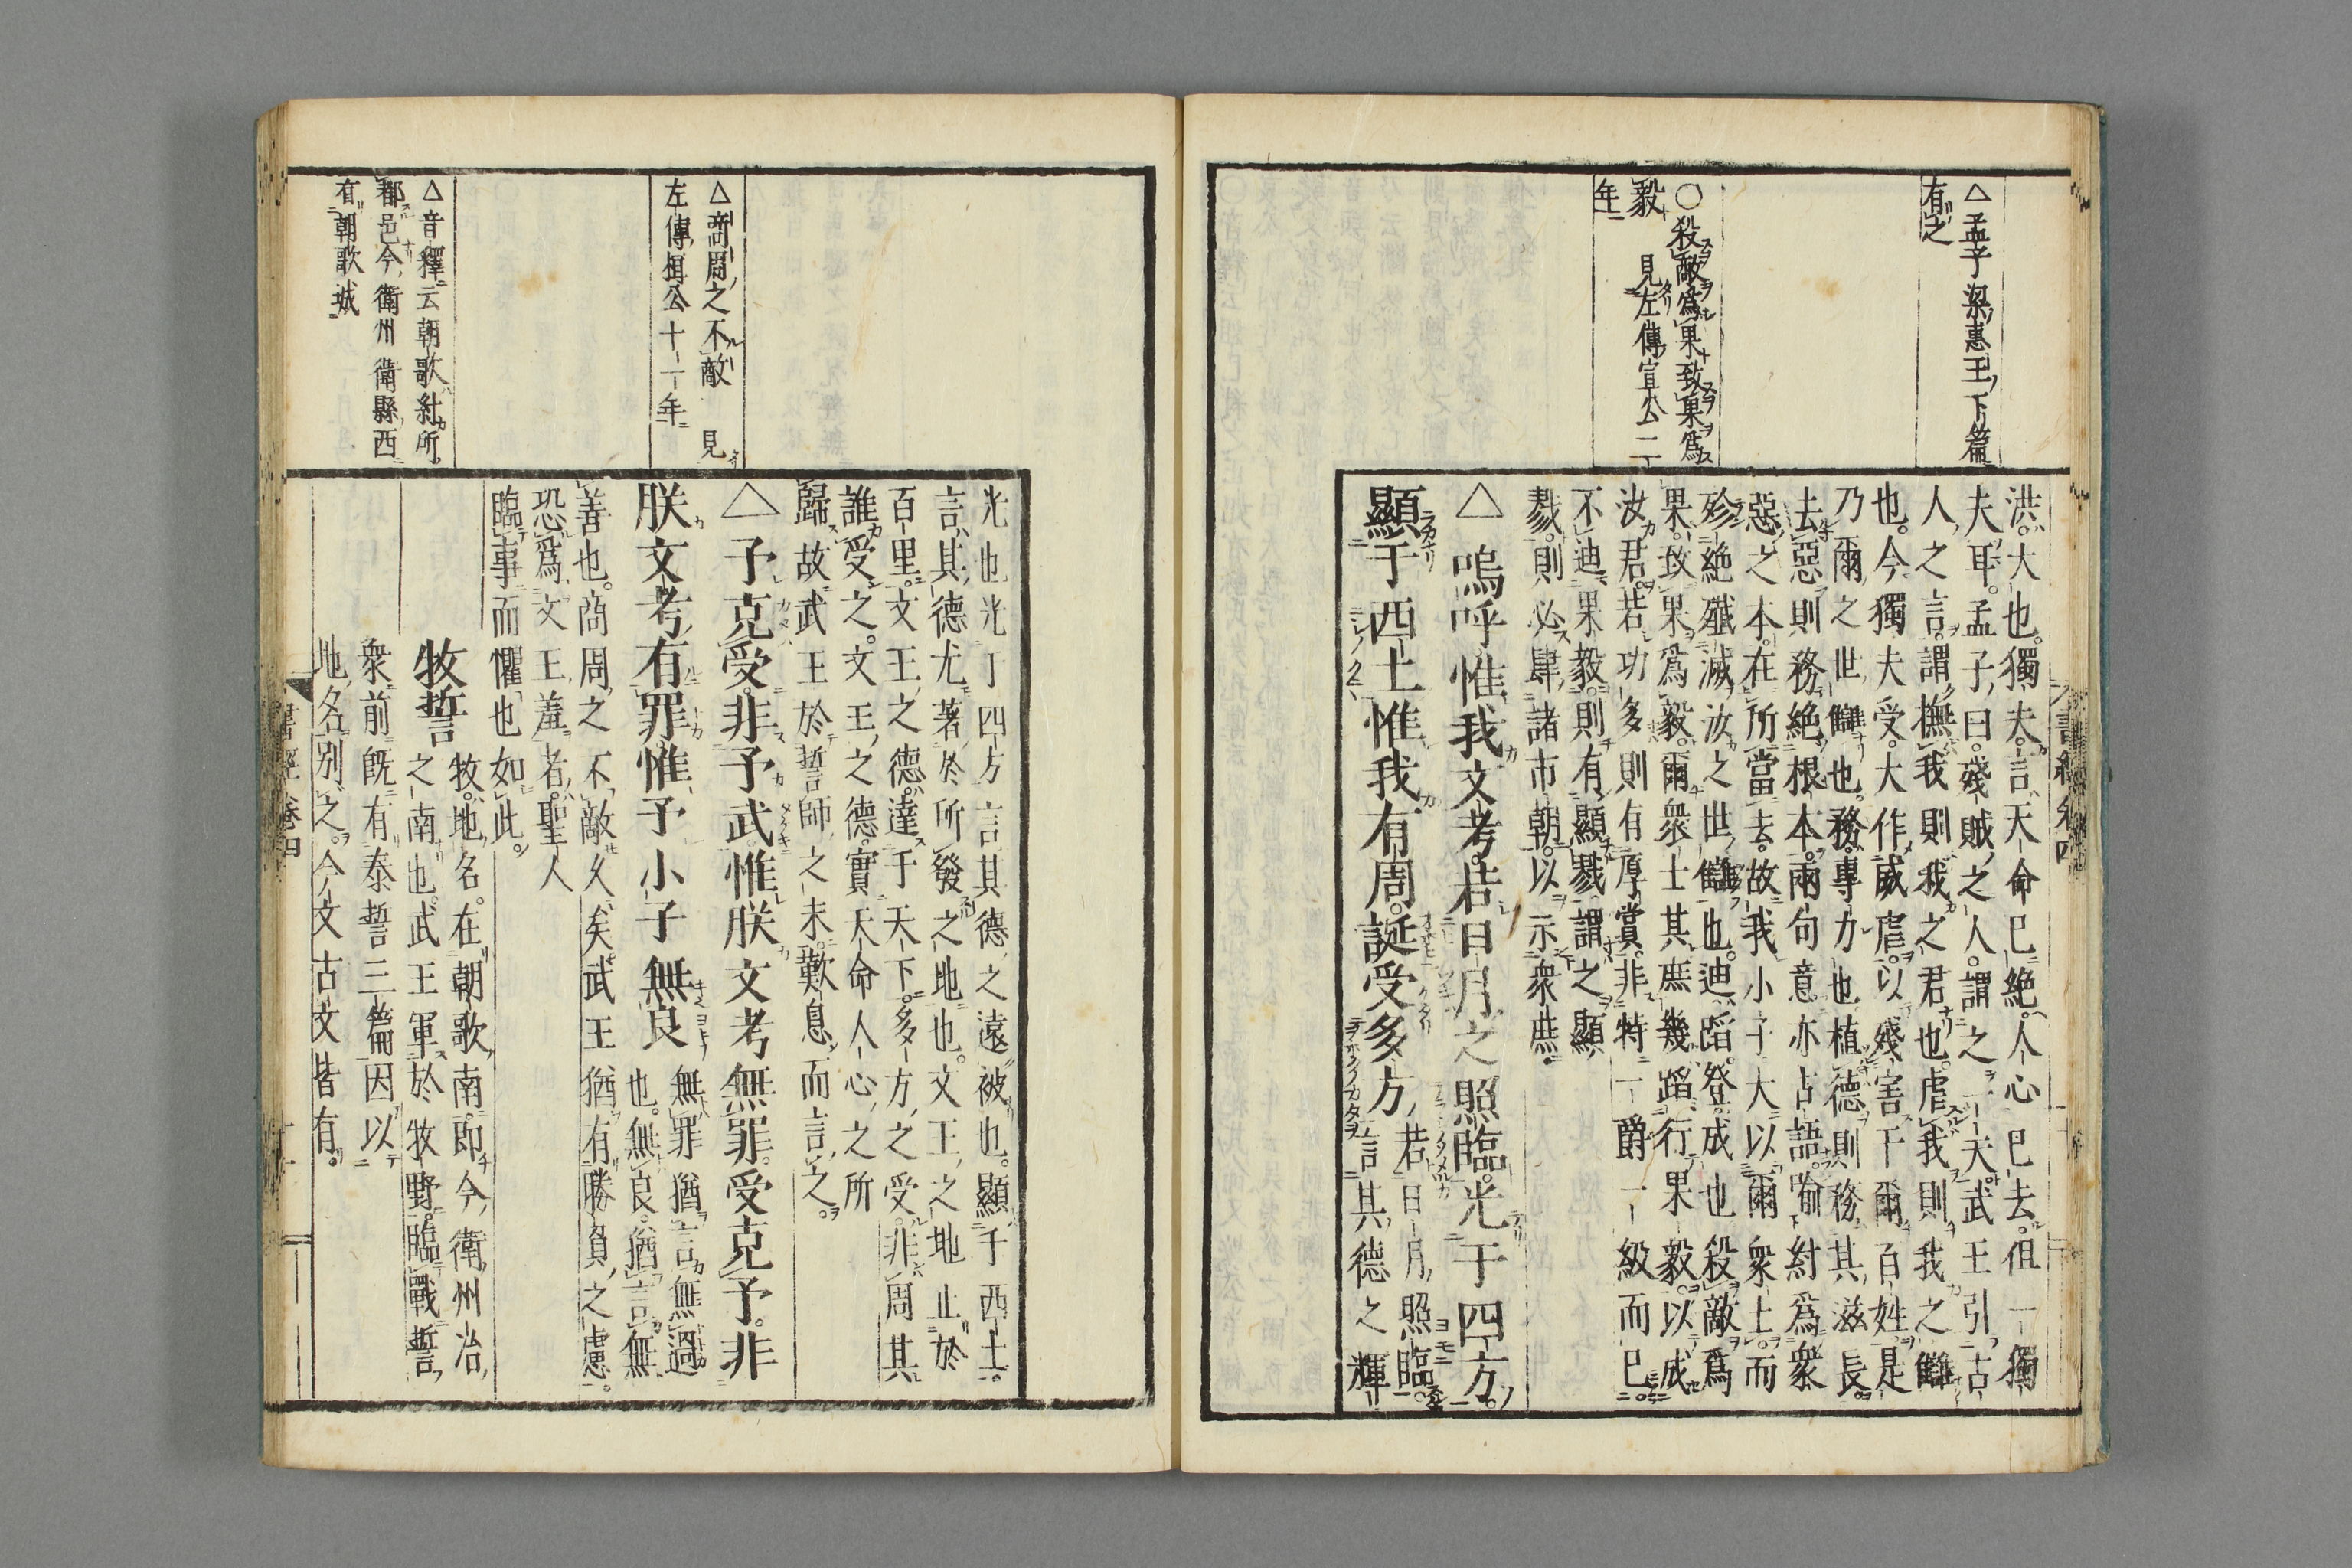 △孟子梁惠王下篇
有之
○殺敵爲果致果爲
毅　見左傳宣公二
年
洪大也。獨夫。言天命已絕。人心已去。但一獨
夫耳。孟子曰。殘賊之人。謂之一夫。武王引古
人之言。謂撫我則我之君也。虐我則我之讎
也。今獨夫受。大作威虐。以殘害于爾百姓。是
乃爾之世讎也。務。專力也。植德則務其滋長。
去惡則務絕根本。兩句意亦古語。喻紂爲衆
惡之本。在所當去。故我小子大以爾衆士。而
殄絕殲滅汝之世讎也。迪。蹈。登。成也。殺敵爲
果。致果爲毅。爾衆士其庶幾蹈行果毅。以成
汝君。若功多則有厚賞。非特一爵一級而已。
不迪果毅。則有顯戮。謂之顯
戮。則必肆諸市朝。以示衆庶。
△嗚呼惟我文考。若日月之照臨。光于四方。
顯于西土惟我有周。誕受多方
若日月照臨。
言其德之輝
△商周之不敵　見
左傳桓公十一年
△音釋云朝歌紂所
都邑今衛州衛縣西
有朝歌城
光也光于四方言其德之遠被也。顯于西土。
言其德尤著於所發之地也。文王之地止於
百里。文王之德。達于天下。多方之受。非周其
誰受之。文王之德。實天命人心之所
歸故武王於誓師之末。歎息而言之。
△予克受。非予武惟朕文考無罪。受克予。非
朕文考有罪惟予小子無良
無罪猶言無過
也。無良。猶言無
善也。商周之不敵久矣。武王猶有勝負之慮。
恐爲文王羞者。聖人
臨事而懼也如此。
牧誓
牧。地名。在朝歌南。即今衛州治
之南也。武王軍於牧野。臨戰誓
衆前既有泰誓三篇因以
地名別之。今文古文皆有。
書經卷四